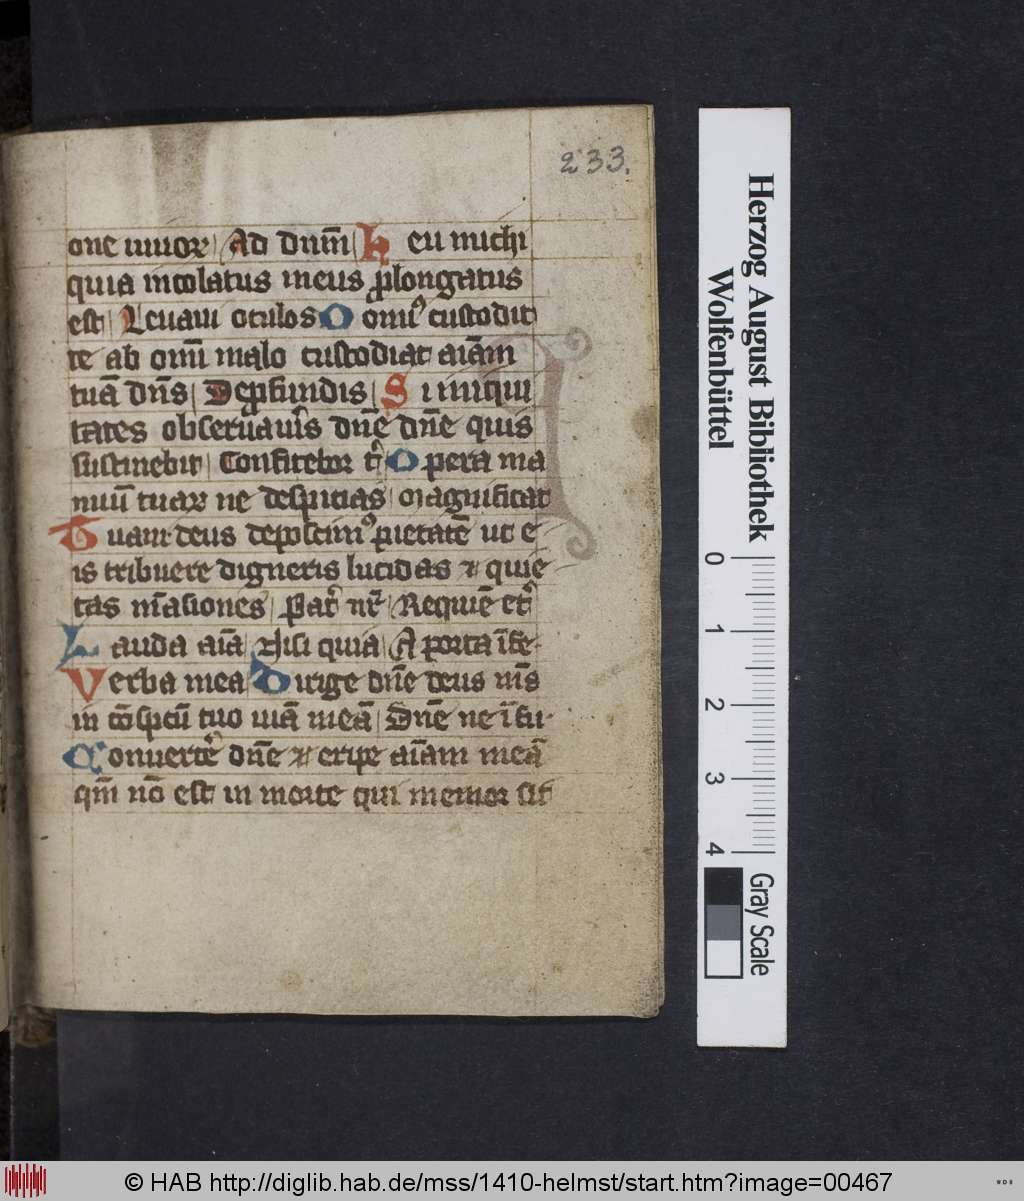 233.
one viuor Ad dnm̄ heu michi
quia incolatus meus ꝓlongatus
est Leuaui oculos O omīꝰ custodit
te ab omī malo custodiat aīam
tuā dn̄s De ꝓfundis Si iniqui
tates obseruaueris dn̄e dn̄e quis
sustinebit Confitebor tͥ Opera ma
nuū tuaꝝ ne despicias Magnificat
Tuam deus deposcimꝰ pietatē ut e
is tribuere digneris lucidas ⁊ quie
tas māsiones Pat̄ nr̄ Requiē et̄
Lauda aīa Nisi quia A porta īfe
Verba mea Dirige dn̄e deus m̄s
in cōspcū tuo uiā meā Dn̄e ne ī fu
Conuertē dn̄e ⁊ eripe aīam meā
qm̄ nō est in morte qui memor sit
Herzog August Bibliothek
Wolfenbüttel
0 1 2 3 4
Gray Scale
© HAB http://diglib.hab.de/mss/1410-helmst/start.htm?image=00467